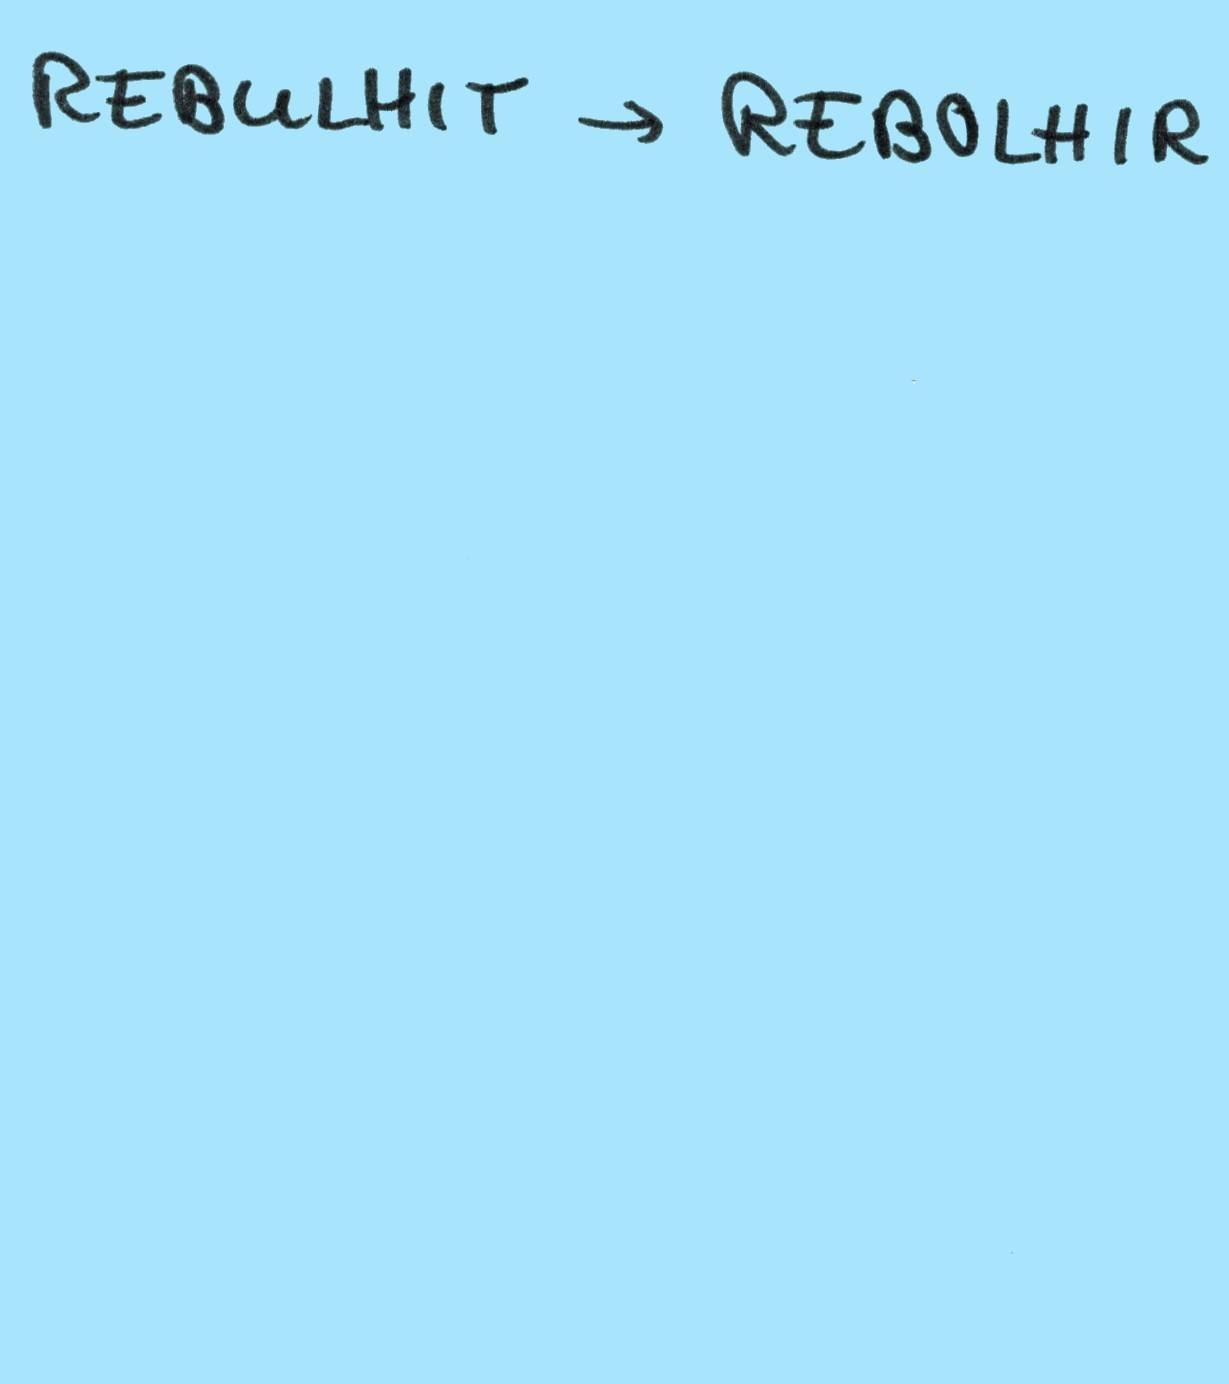 REBULHIT → REBOLHIR